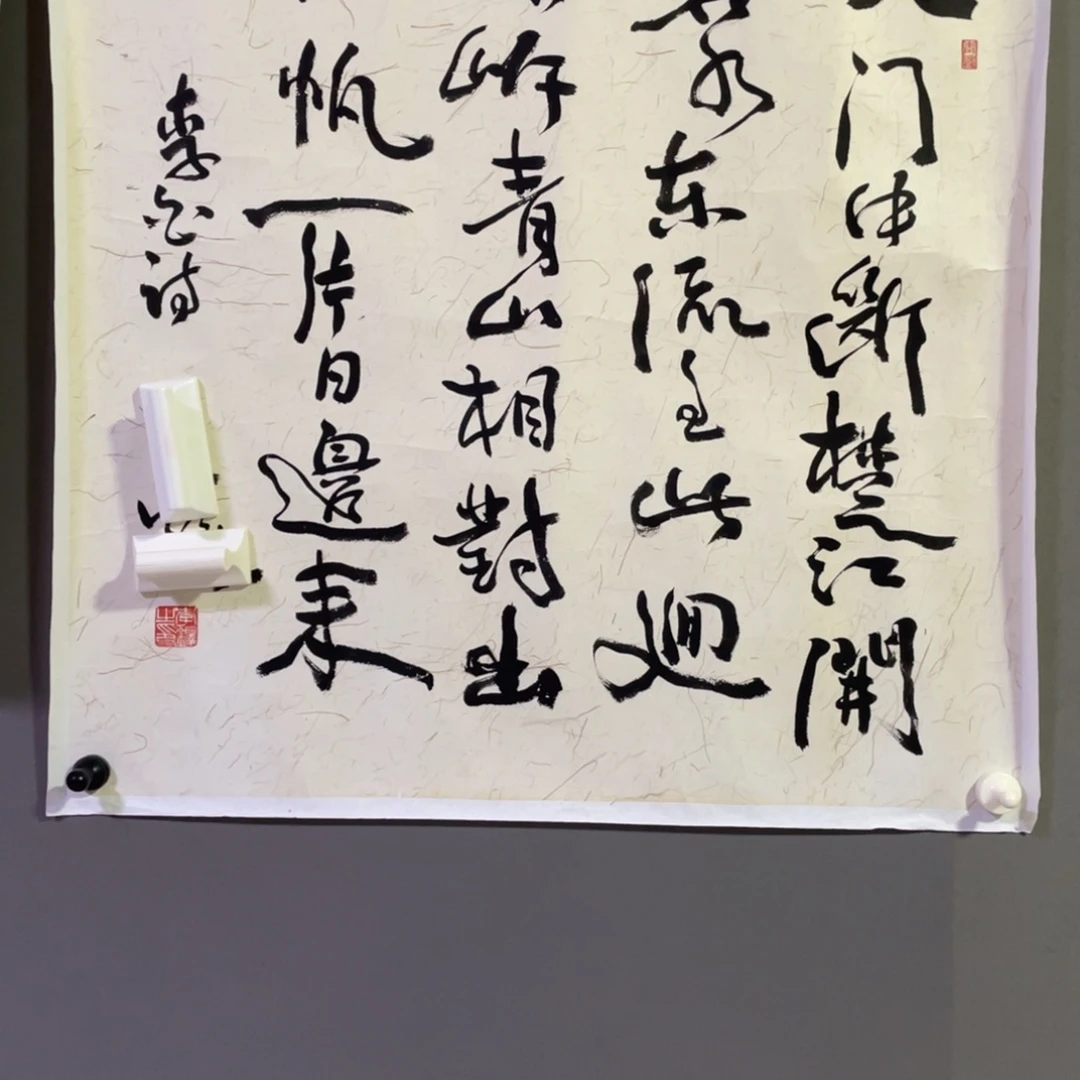 门中斷楚江開
水东流至此迴
岸青山相對出
帆一片日邊来
李白诗